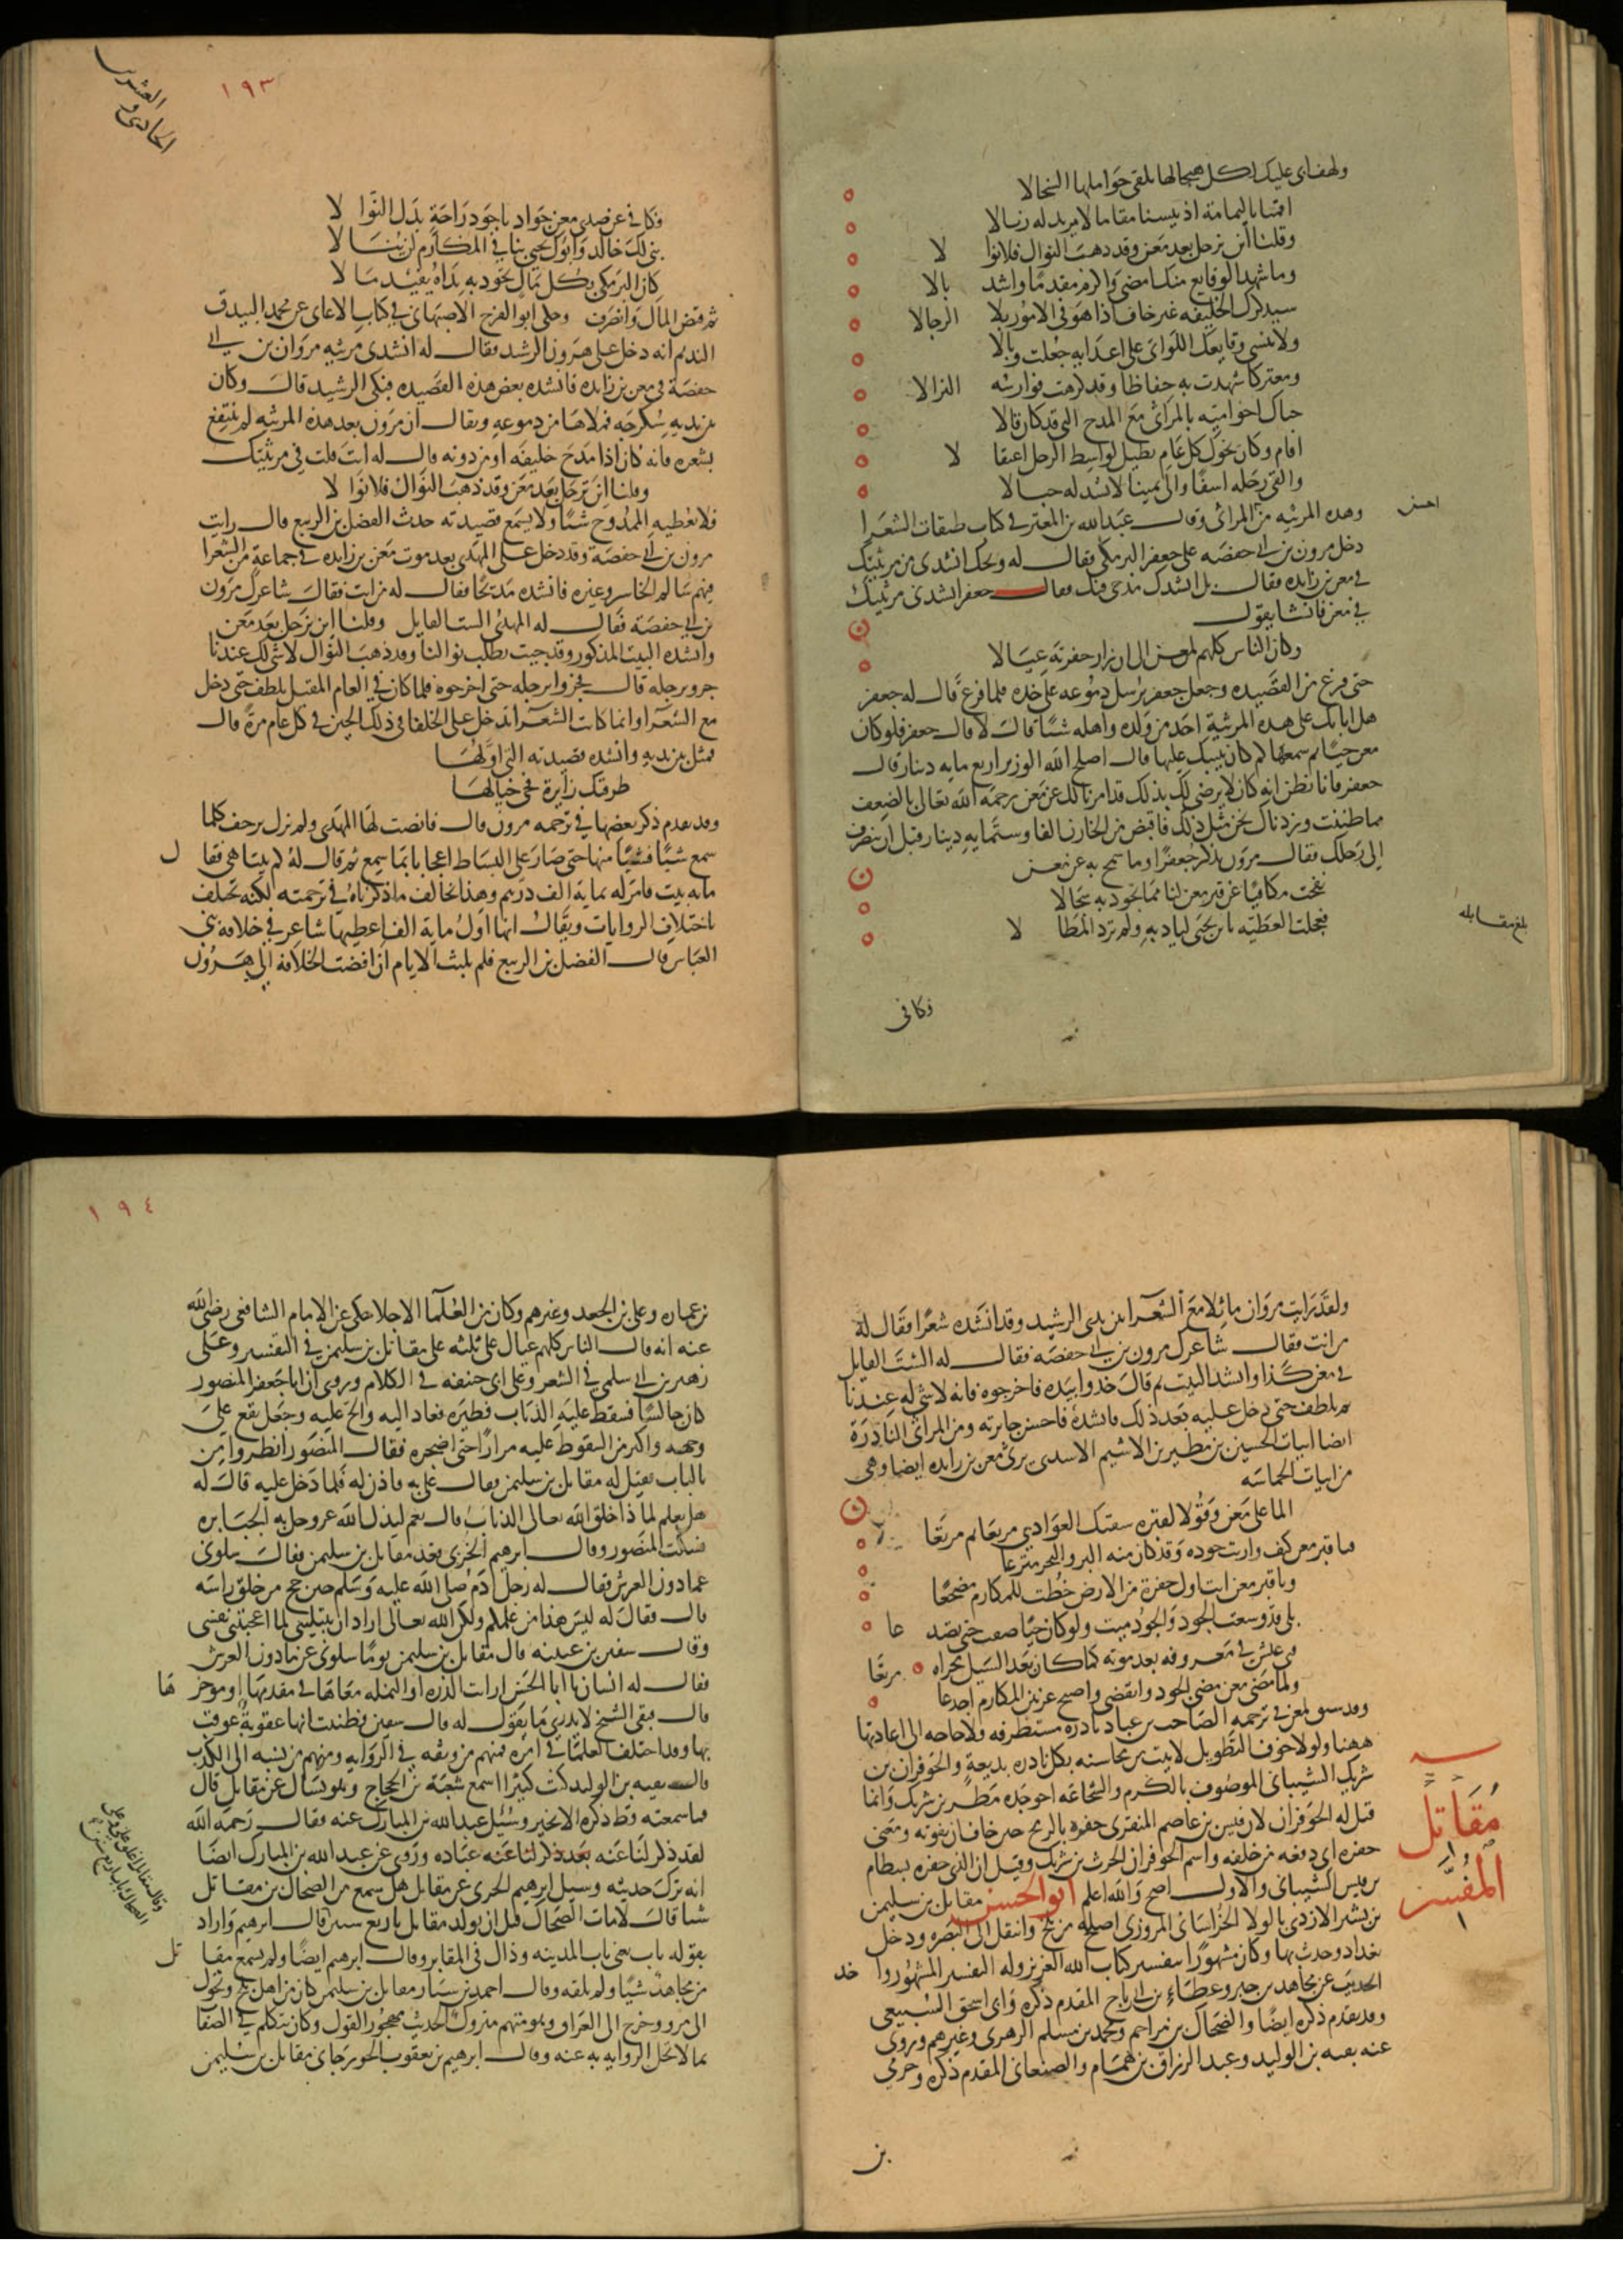 ولهف اى عليك لكل هيجا لها تلقى حواملها السخالا
اقمنا باليمامة اذ يئسنا مقاما لا يريد له زيالا
وقلنا اين نرحل بعد معن وقد ذهب النوال فلانوا لا
وما شهد الوقايع منك امضى واكرم مقدما واشد بالا
سيذكرك الخليفة غير خاف اذا هو فى الامور بلا الرجالا
ولا ينسى وقايعك اللواتى على اعدايه جعلت وبالا
ومعتركا شهدت به حفاظا وقد كرهت فوارسه النزالا
حباك اخو امية بالمراثى مع المدح التى قد كان قالا
اقام وكان نحوك كل عام يطيل لواسط الرحل اعتقا لا
والقى رحله اسفا والى يمينا لا يشد له حبالا
وهذه المرثيه من المراثى وقال عبد الله بن المعتز فى كتاب طبقات الشعرا
احسن
دخل مرون بن ابى حفصه على جعفر البرمكى فقال له ويحك انشدنى من مرثيتك
فى معن بن زايده فقال بل انشدك مدحى فيك فقال جعفر انشدنى مرثيتك
فى معن فانشا يقول
وكان الناس كلهم لمعن الى ان زار حفرته عيالا
حتى فرغ من القصيده وجعل جعفر يرسل دموعه على خده فلما فرغ قال له جعفر
هل اثابك على هذه المرثية احد من ولده واهله شيئا قال لا قال جعفر فلو كان
معن حيا ثم سمعها كم كان يثيبك عليها قال اصلح الله الوزير اربع مايه دينار قال
جعفر فانا نظن انه كان لا يرضى لك بذلك قد امرنا لك عن معن رحمه الله تعالى بالضعف
مما ظننت ونزدناك نحن مثل ذلك فاقبض من الخازن الفا وستمايه دينار قبل ان ينصرف
الى رحلك فقال مرون يذكر جعفرا وما سمح به عن معن
نفحت مكافيا عن قبر معن لنا مما تجود به سجالا
فعجلت العطيه يابن يحيى لباديه ولم ترد المطا لا
بلغ مقابله
فكافى
١٩٣
الحادى والعشرين
فكافى عن صدى معن جواد باجود راحة بذل النوا لا
بنى لك خالد وابوك يحيى بنا فى المكارم لن ينا لا
كان البرمكى بكل مال تجود به يداه يفيد ما لا
ثم قبض المال وانصرف وحكى ابو الفرج الاصبهانى فى كتاب الاغانى عن محمد البيدق
النديم انه دخل على هرون الرشيد فقال له انشدنى مرثيه مروان بن ابى
حفصة فى معن بن زايده فانشده بعض هذه القصيده فبكى الرشيد قال وكان
بين يديه سكرجه فملاها من دموعه ويقال ان مرون بعد هذه المرثيه لم ينتفع
بشعره فانه كان اذا مدح خليفه او من دونه قال له انت قلت فى مرثيتك
وقلنا اين نرحل بعد معن وقد ذهب النوال فلانوا لا
فلا يعطيه الممدوح شيئا ولا يسمع قصيدته حدث الفضل بن الربيع قال رايت
مرون بن ابى حفصة وقد دخل على المهدى بعد موت معن بن زايده فى جماعة من الشعرا
فيهم سالم الخاسر وغيره فانشده مديحا فقال له من انت فقال شاعرك مرون
بن ابى حفصة فقال له المهدى الست القايل وقلنا اين نرحل بعد معن
وانشده البيت المذكور وقد جيت تطلب نوالنا وقد ذهب النوال لا شى لك عندنا
جروا برجله قال فجروا برجله حتى اخرجوه فلما كان فى العام المقبل تلطف حتى دخل
مع الشعرا وانما كانت الشعرا تدخل على الخلفا فى ذلك الحين فى كل عام مرة قال
فمثل بين يديه وانشده قصيدته التى اولها
طرقتك زايرة فحى خيالها
وقد تقدم ذكر بعضها فى ترجمه مرون قال فانصت لها المهدى ولم يزل يزحف كلما
سمع شيئا فشيئا منها حتى صار على البساط اعجابا بما سمع ثم قال له كم بيتا هى فقا ل
مايه بيت فامر له بماية الف درهم وهذا يخالف ما ذكرناه فى ترجمته لكنه تختلف
باختلاف الروايات ويقال انها اول ماية الف اعطيها شاعر فى خلافة بنى
العباس قال الفضل بن الربيع فلم يلبث الايام ان افضت الخلافة الى هرون
ولقد رايت مروان ماثلا مع الشعرا بين يدى الرشيد وقد انشده شعرا فقال له
من انت فقال شاعرك مرون بن ابى حفصه فقال له الست القايل
فى معن كذا وانشد البيت ثم قال خذوا بيده فاخرجوه فانه لا شى له عندنا
ثم تلطف حتى دخل عليه بعد ذلك فانشده فاحسن جايزته ومن المراثى النادرة
ايضا ابيات الحسين بن مطير بن الاشيم الاسدى يرثى معن بن زايده ايضا وهى
من ابيات الحماسه
الما على معن وقولا لقبره سقتك الغوادى مربعا ثم مربعا
فيا قبر معن كيف واريت جوده وقد كان منه البر والبحر مترعا
ويا قبر معن انت اول حفرة من الارض خطت للمكارم مضجعا
بلى قد وسعت الجود والجود ميت ولو كان حيا ضقت حتى تصد عا
فتى عيش فى معروفه بعد موته كما كان بعد السيل مجراه مرتعا
ولما مضى معن مضى الجود وانقضى واصبح عرنين المكارم اجدعا
وقد سبق لمعن فى ترجمه الصاحب بن عباد نادره مستظرفه ولا حاجه الى اعادتها
ههنا ولولا خوف التطويل لاتيت من محاسنه بكل نادره بديعة والحوفزان بن
شريك الشيبانى الموصوف بالكرم والشجاعه اخو جده مطر بن شريك وانما
قيل له الحوفزان لان قيس بن عاصم المنقرى حفزه بالرمح حين خاف ان يفوته ومعنى
حفزه اى دفعه من خلفه واسم الحوفزان الحرث بن شريك وقيل ان الذى حفزه بسطام
بن قيس الشيبانى والاول اصح والله اعلم ابو الحسن مقاتل بن سليمن
مقاتل
المفسر
بن بشير الازدى بالولا الخراسانى المروزى اصله من بلخ وانتقل الى البصره ودخل
بغداد وحدث بها وكان مشهورا بتفسير كتاب الله العزيز وله التفسير المشهور وا خذ
الحديث عن مجاهد بن جبر وعطاء بن ابى رباح المقدم ذكره وابى اسحق السبيعى
وقد تقدم ذكره ايضا والضحاك بن مزاحم ومحمد بن مسلم الزهرى وغيرهم وروى
عنه بقيه بن الوليد وعبد الرزاق بن همام والصنعانى المقدم ذكره وحرمى
بن
١٩٤
بن عماره وعلى بن الجعد وغيرهم وكان من العلما الاجلا حكى عن الامام الشافعى رضى الله
عنه انه قال الناس كلهم عيال على ثلثه على مقاتل بن سليمن فى التفسير وعلى
زهير بن ابى سلمى فى الشعر وعلى ابى حنيفه فى الكلام وروى ان ابا جعفر المنصور
كان جالسا فسقط عليه الذباب فطيره فعاد اليه والح عليه وجعل يقع على
وجهه واكثر من السقوط عليه مرارا حتى اضجره فقال المنصور انظروا من
بالباب فقيل له مقاتل بن سليمن فقال على به فاذن له فلما دخل عليه قال له
هل تعلم لماذا خلق الله تعالى الذباب قال نعم ليذل الله عز وجل به الجبابره
فسكت المنصور وقال ابرهيم الحربى قعد مقاتل بن سليمن فقال سلونى
عما دون العرش فقال له رجل ادم صلى الله عليه وسلم حين حج من حلق راسه
قال فقال له ليس هذا من علمكم ولكن الله تعالى اراد ان يبتلينى لما اعجبتنى نفسى
وقال سفين بن عيينه قال مقاتل بن سليمن يوما سلونى عن ما دون العرش
فقال له انسان يا ابا الحسن ارايت الذره او النمله معاها فى مقدمها او موخر ها
قال فبقى الشيخ لا يدرى ما يقول له قال سفين فظننت انها عقوبة عوقب
بها وقد اختلف العلما فى امره فمنهم من وثقه فى الروايه ومنهم من نسبه الى الكذب
قال بقيه بن الوليد كنت كثيرا اسمع شعبة بن الحجاج وهو يسال عن مقاتل قال
فما سمعته قط ذكره الا بخير وسئل عبد الله بن المبارك عنه فقال رحمه الله
لقد ذكر لنا عنه عباده وروى عن عبد الله بن المبارك ايضا
انه ترك حديثه وسيل ابرهيم الحربى عن مقاتل هل سمع من الضحاك بن مقاتل
شيا قال لا مات الضحاك قبل ان يولد مقاتل باربع سنين قال ابرهيم واراد
بقوله باب يعنى باب المدينه وذاك فى المقابر وقال ابرهيم ايضا ولم يسمع مقا تل
من مجاهد شيئا ولم يلقه وقال احمد بن سيار مقاتل بن سليمن كان من اهل بلخ وتحول
الى مرو وخرج الى العراق وهو متهم متروك الحديث مهجور القول وكان يتكلم فى الصفا
بما لا تحل الروايه به عنه وقال ابرهيم بن يعقوب الجوزجانى مقاتل بن سليمن